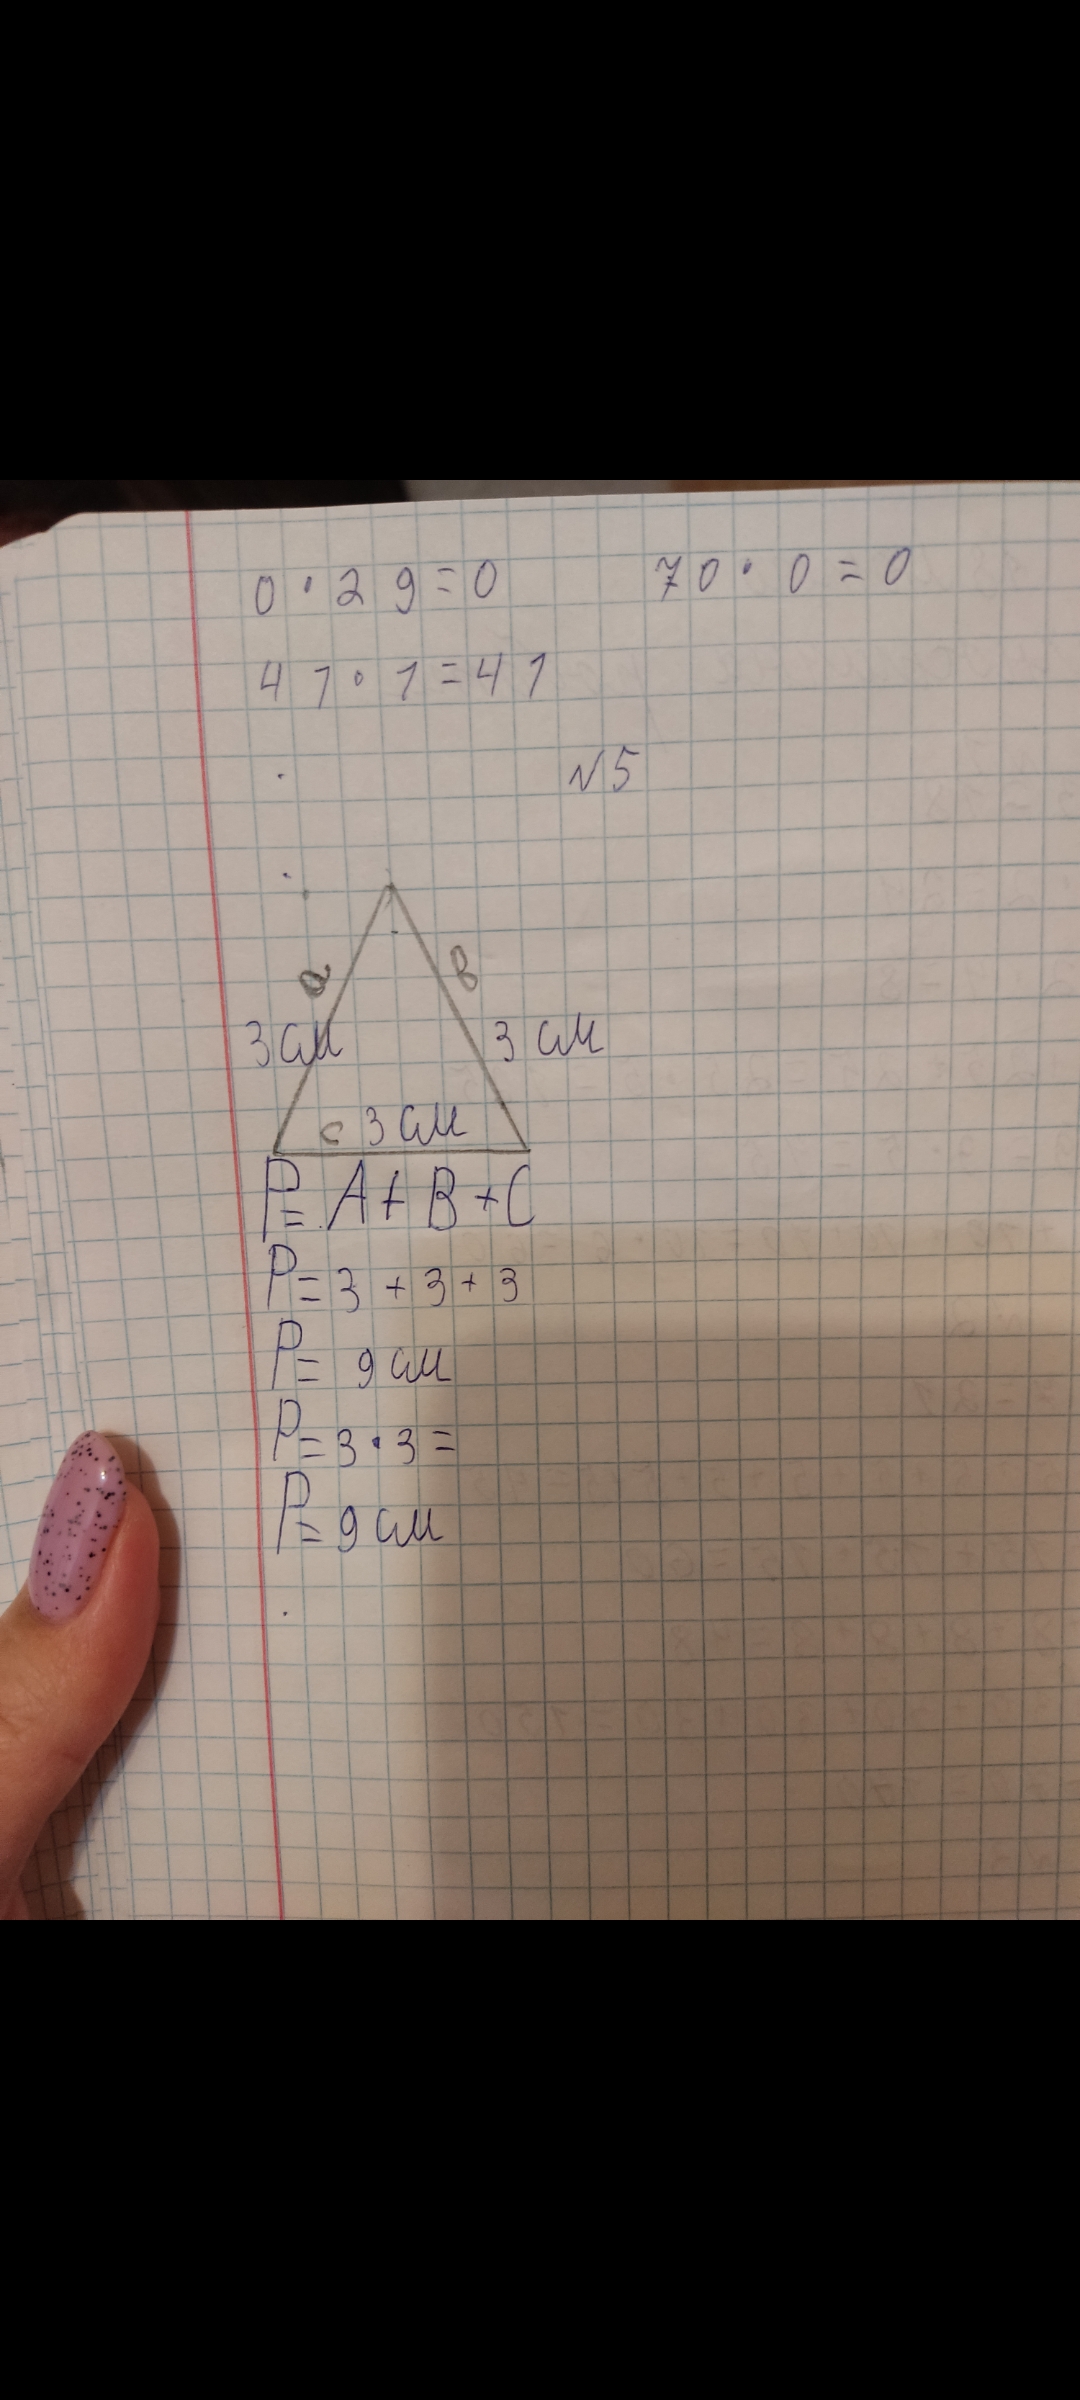 0 · 29 = 0 70 · 0 = 0
41 · 1 = 41
№5
а в
3 см 3 см
с 3 см
P = A + B + C
P = 3 + 3 + 3
P = 9 см
P = 3 · 3 =
P = 9 см